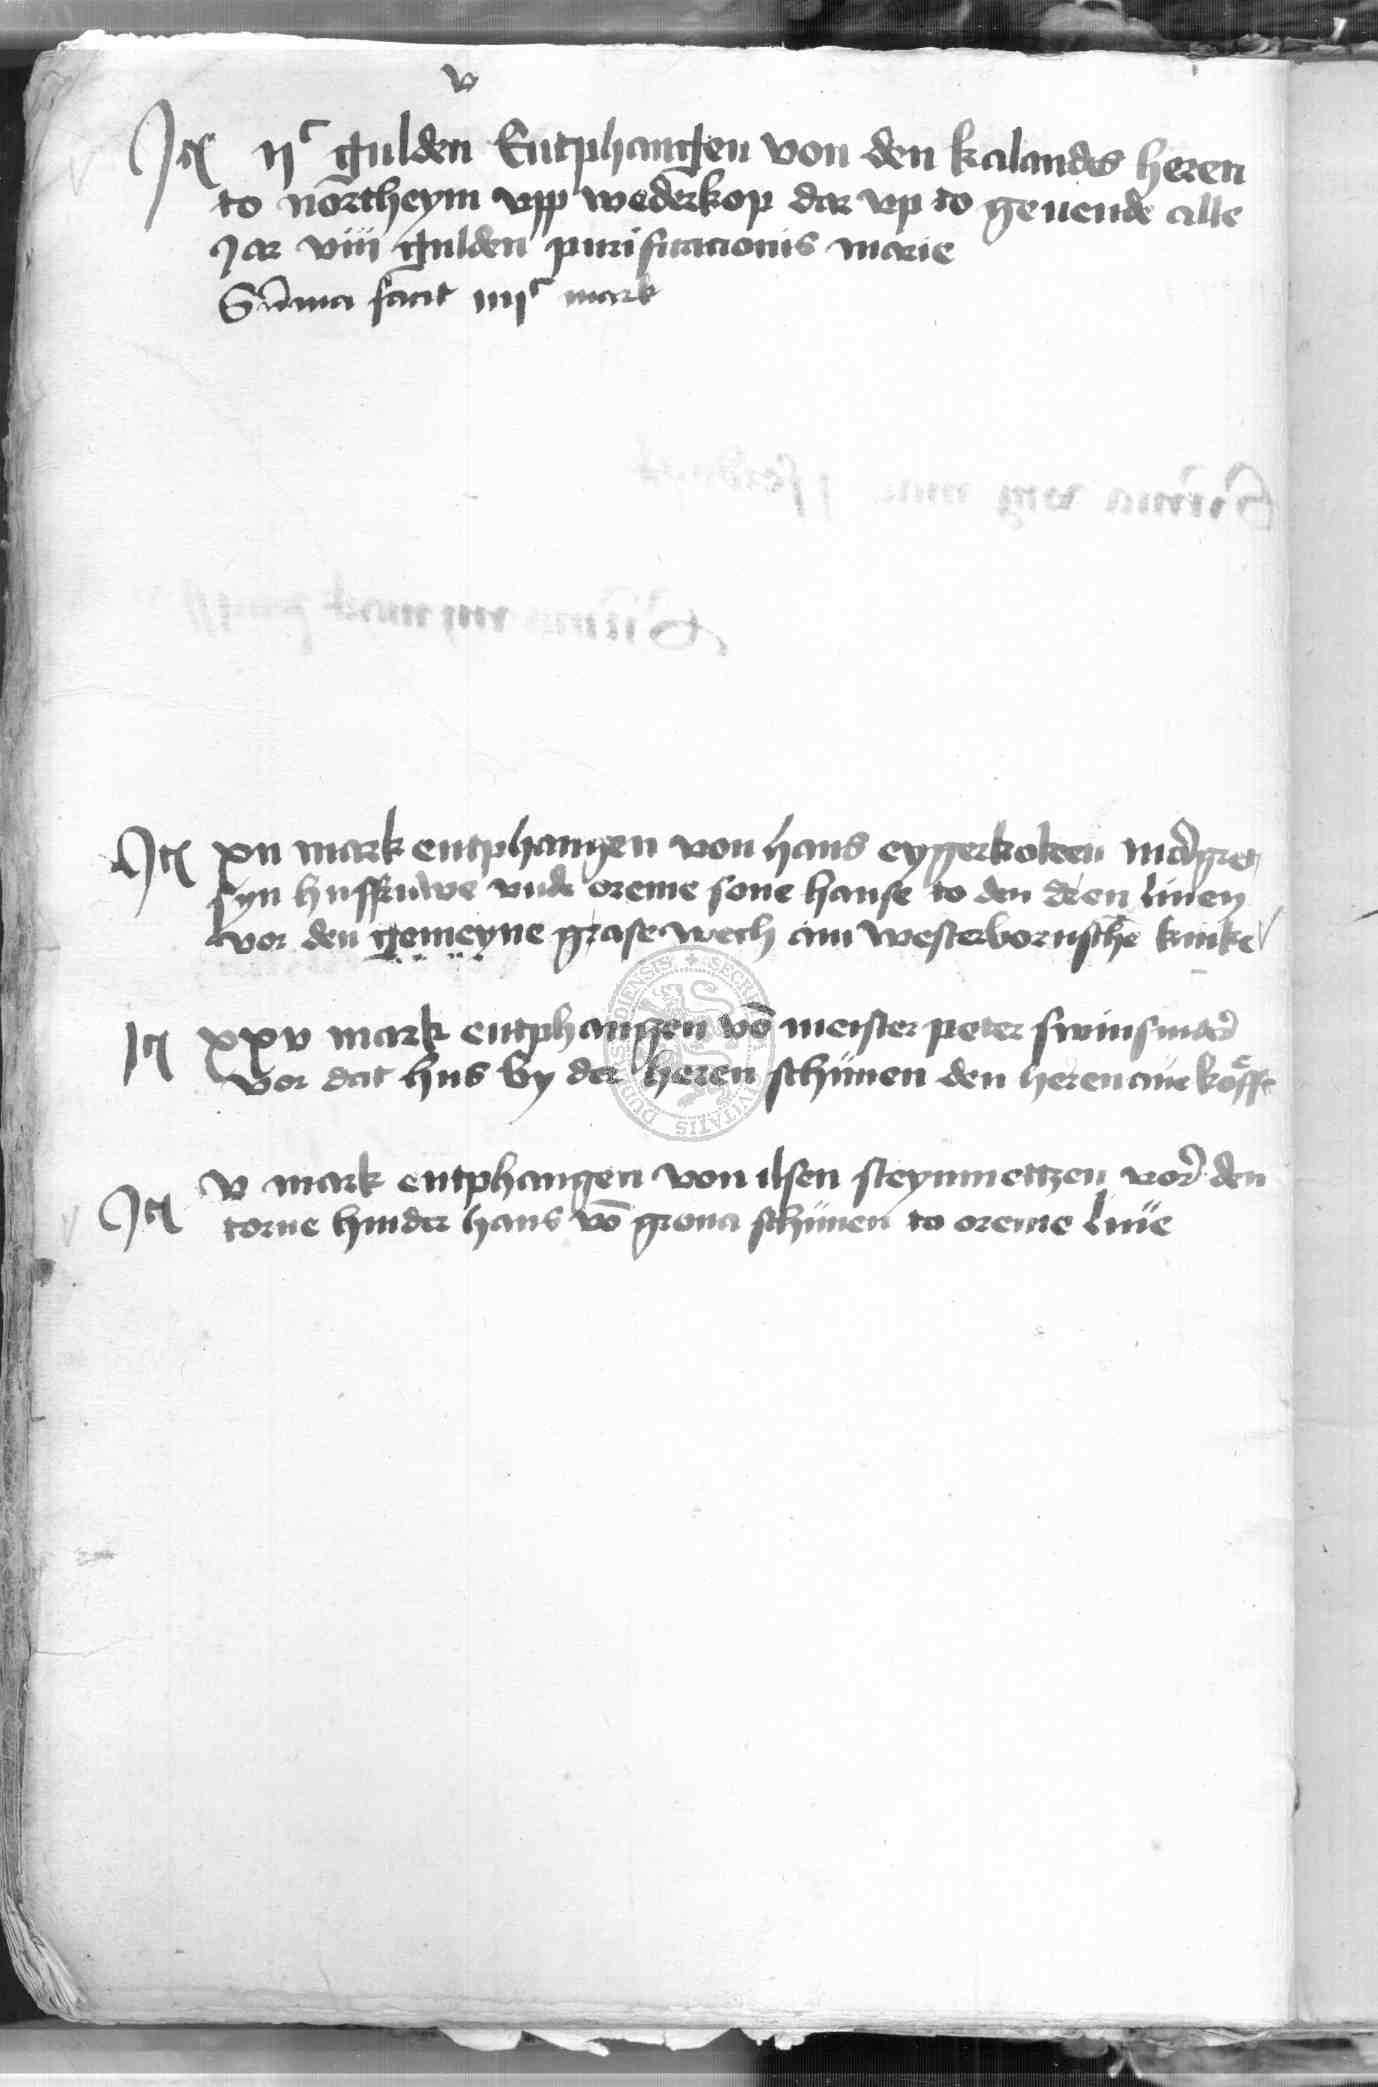 v
Itē ijᶜ gulden Entphangen von den kalandes heren
to northeym vpp wederkop dar vp to geuende alle
Jar viii gulden purificacionis marie
Sūma facit iiijᶜ mark
Itē xii mark entphangen von hans eygerkoken
syn husfruwe vnde oreme sone hanse to den dren liuen
vor den gemeyne grasewech am westerbornschē
Itē xxv mark entphangen vō meister peter
vor dat hus by der heren schünen den heren
Itē v mark entphangen von ilsen steynmettzen vor den
torne hinder hans vō grona schünen to oreme liue
SECRE CIVITATIS DUDERSTADIENSIS